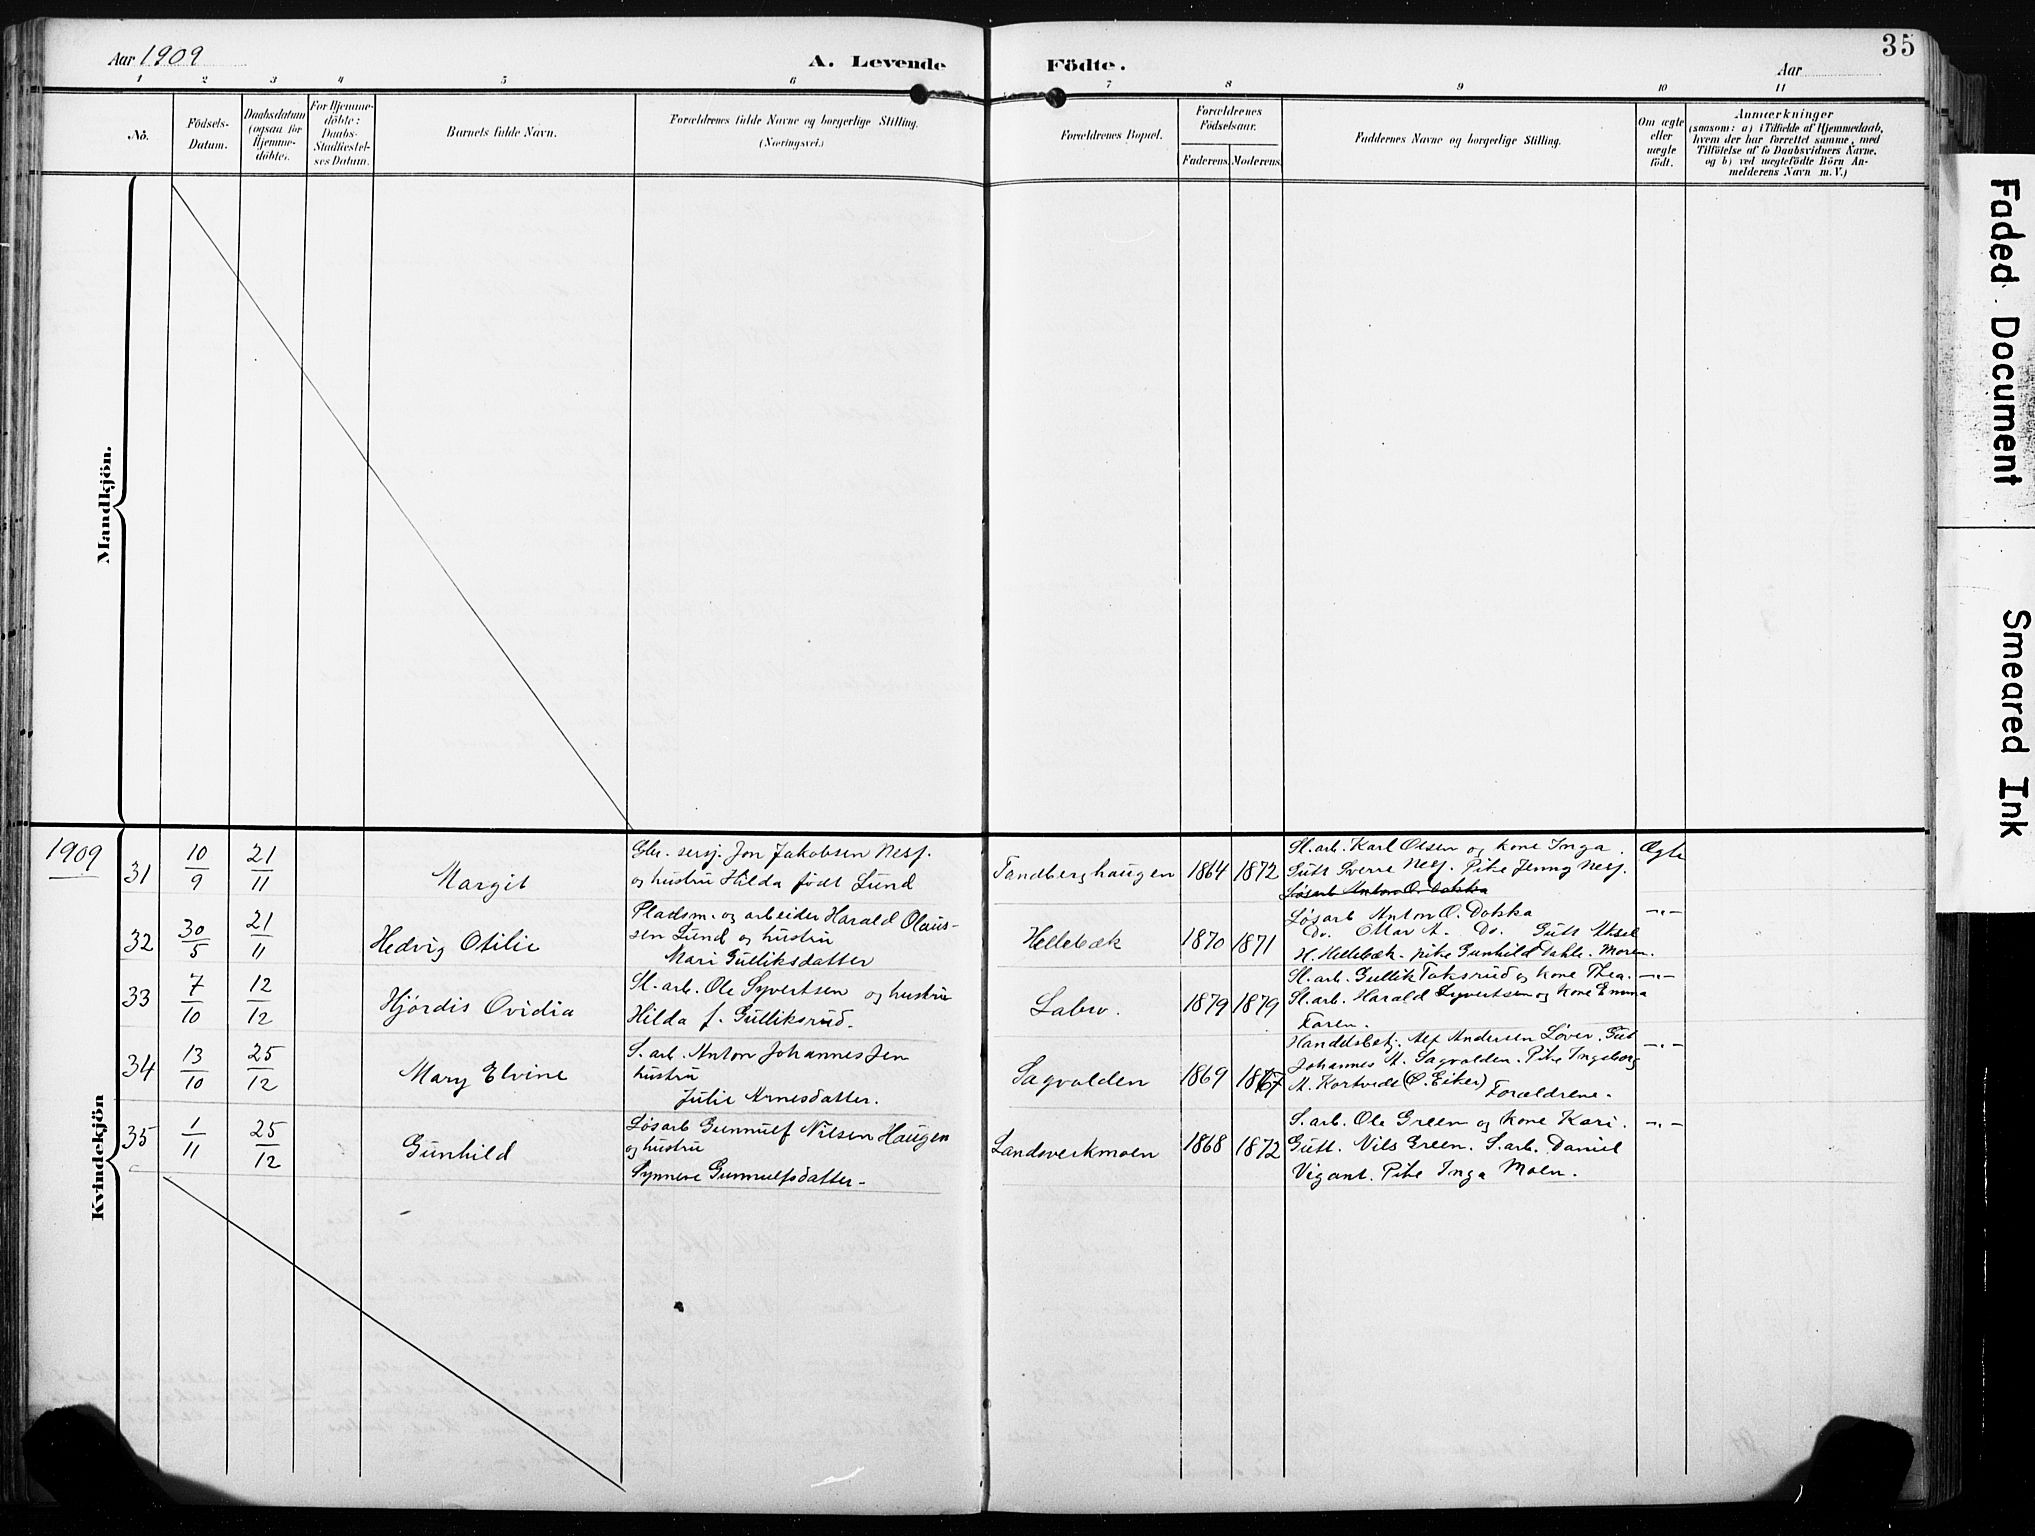 Aar 1909
A. Levende Födte.
Aar
35
1 2 3 4 5 6 7 8 9 10 11
Nô.
Födsels-
Datum.
Daabsdatum
(ogsaa for
Hjemme-
döbte).
For Hjemme-
döbte:
Daabs-
Stadfæstel-
ses Datum.
Barnets fulde Navn.
Forældrenes fulde Navne og borgerlige Stilling.
(Næringsvei.)
Forældrenes Bopæl.
Forældrenes
Födselsaar.
Faderens. Moderens.
Faddernes Navne og borgerlige Stilling.
Om ægte
eller
uægte
födt.
Anmærkninger
(saasom: a) i Tilfælde af Hjemmedaab,
hvem der har forrettet samme, med
Tilföielse af to Daabsvidners Navne.
og b) ved uægtefödte Börn An-
melderens Navn m. V.)
Mandkjön.
Kvindekjön
1909
31
10/9
21/11
Margit
Gbr. sersj. Jon Jakobsen Nesj.
og hustru Hilda født Lund
Tandberghaugen
1864
1872
Sl. arb. Karl Olsen og kone Inga.
Gutt Sverre Nesj. Pike Jenny Nesj.
Løsarb Anton O. Dokka
Ægte
32
30/5
21/11
Hedvig Otilie
Pladsm. og arbeider Harald Olaus-
sen Lund og hustru
Mari Gulliksdatter
Hellebæk
1870
1871
Løsarb Anton O. Dokka
Do. Ottar A. Do. Gutt Aksel
H. Hellebæk. pike Gunhild Dahle. Moren.
-"-
33
7/10
12/12
Hjørdis Ovidia
Sl. arb. Ole Syvertsen og hustru
Hilda f. Gulliksrud.
Labro.
1879
1879
Sl. arb. Gullik Toksrud og kone Thea.
Sl. arb. Harald Syvertsen og kone Emma
Faren.
-"-
34
13/10
25/12
Mary Elvine
S. arb. Anton Johannesen
hustru
Julie Arnesdatter.
Sagvolden
1869
1867
Handelsbetj. Alf Andersen Løver. Gut
Johannes A. Sagvolden. Pike Ingeborg
A. Kortvedt (Ø. Eiker) Forældrene.
-"-
35
1/11
25/12
Gunhild
Løsarb Gunnulf Nilsen Haugen
og hustru
Synneve Gunnulfsdatter.
Landsverkmoen
1868
1872
S. arb. Ole Green og kone Kari.
Gutt. Nils Green. S. arb. Daniel
Vigant. Pike Inga Moen.
-"-
Faded Document
Smeared Ink